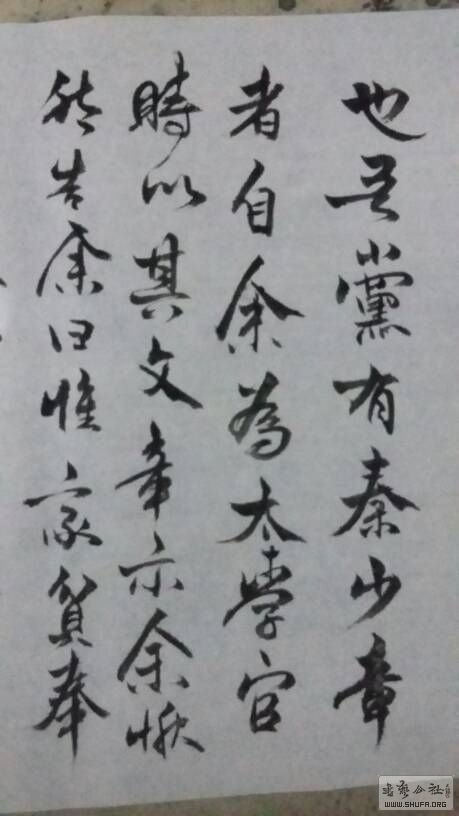 也吾黨有秦少章
者自余為太學官
時以其文章示余愀
然告余曰惟家貧奉
書藝公社
WWW.SHUFA.ORG